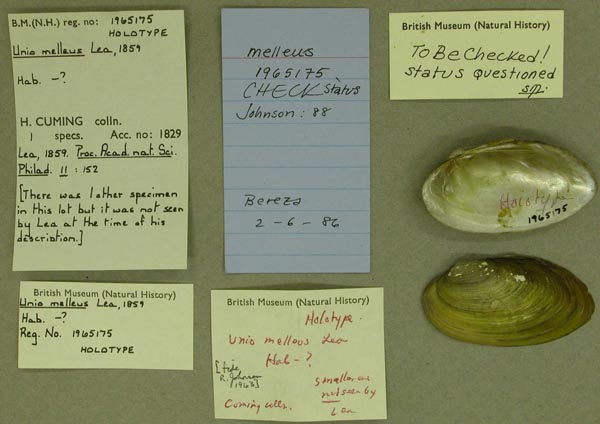 B.M.(N.H.) reg. no: 1965175
HOLOTYPE
Unio melleus Lea, 1859
Hab. -?
H. CUMING colln.
1 specs. Acc. no: 1829
Lea, 1859. Proc. Acad. nat. Sci.
Philad. 11 : 152
[There was 1 other specimen
in this lot but it was not seen
by Lea at the time of his
description.]
British Museum (Natural History)
Unio melleus Lea, 1859
Hab. -?
Reg. No. 1965175
HOLOTYPE
melleus
1965175
CHECK status
Johnson : 88
Bereza
2 - 6 - 86
British Museum (Natural History)
Holotype.
Unio melleus Lea
Hab - ?
[fide
R. Johnson
1963]
smaller one
not seen by
Lea
Cuming colln.
British Museum (Natural History)
To Be Checked!
status questioned
Holotype
1965175